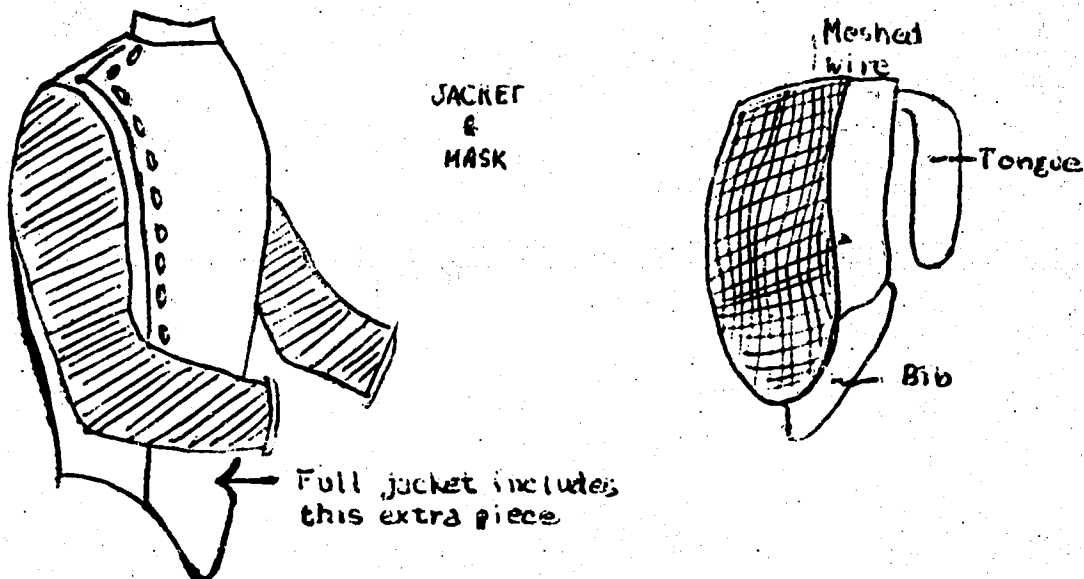 JACKET
&
MASK
Meshed
wire
Tongue
Bib
Full jacket includes
this extra piece